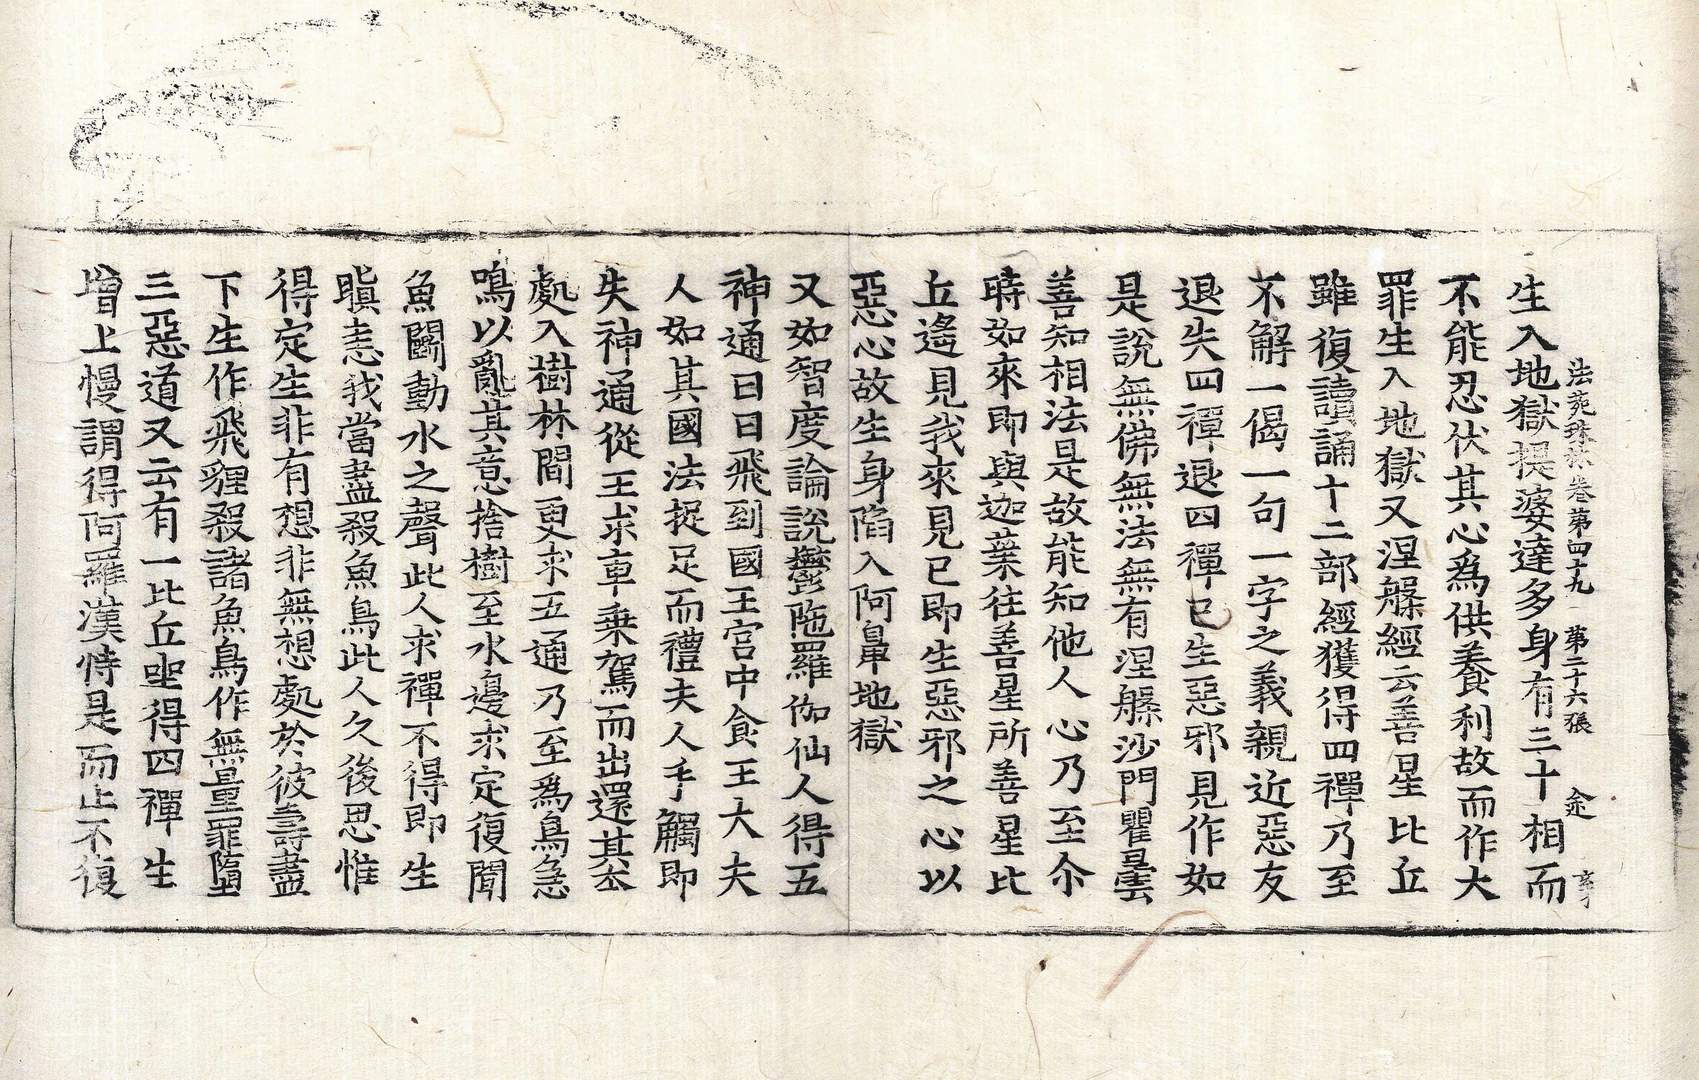 法苑珠林卷第四十九 第二十六張
生入地獄提婆達多身有三十相而
不能忍伏其心爲供養利故而作大
罪生入地獄又涅槃經云善星比丘
雖復讀誦十二部經獲得四禪乃至
不解一偈一句一字之義親近惡友
退失四禪退四禪已生惡邪見作如
是說無佛無法無有涅槃沙門瞿曇
善知相法是故能知他人心乃至尒
時如來即與迦葉往善星所善星比
丘遙見我來見已即生惡邪之心以
惡心故生身陷入阿鼻地獄
又如智度論說鬱陁羅伽仙人得五
神通日日飛到國王宮中食王大夫
人如其國法捉足而禮夫人手觸即
失神通從王求車乘駕而出還其本
處入樹林間更求五通乃至爲鳥急
鳴以亂其意捨樹至水邊求定復聞
魚鬭動水之聲此人求禪不得即生
瞋恚我當盡殺魚鳥此人久後思惟
得定生非有想非無想處於彼壽盡
下生作飛貍殺諸魚鳥作無量罪墮
三惡道又云有一比丘坐得四禪生
增上慢謂得阿羅漢恃是而止不復